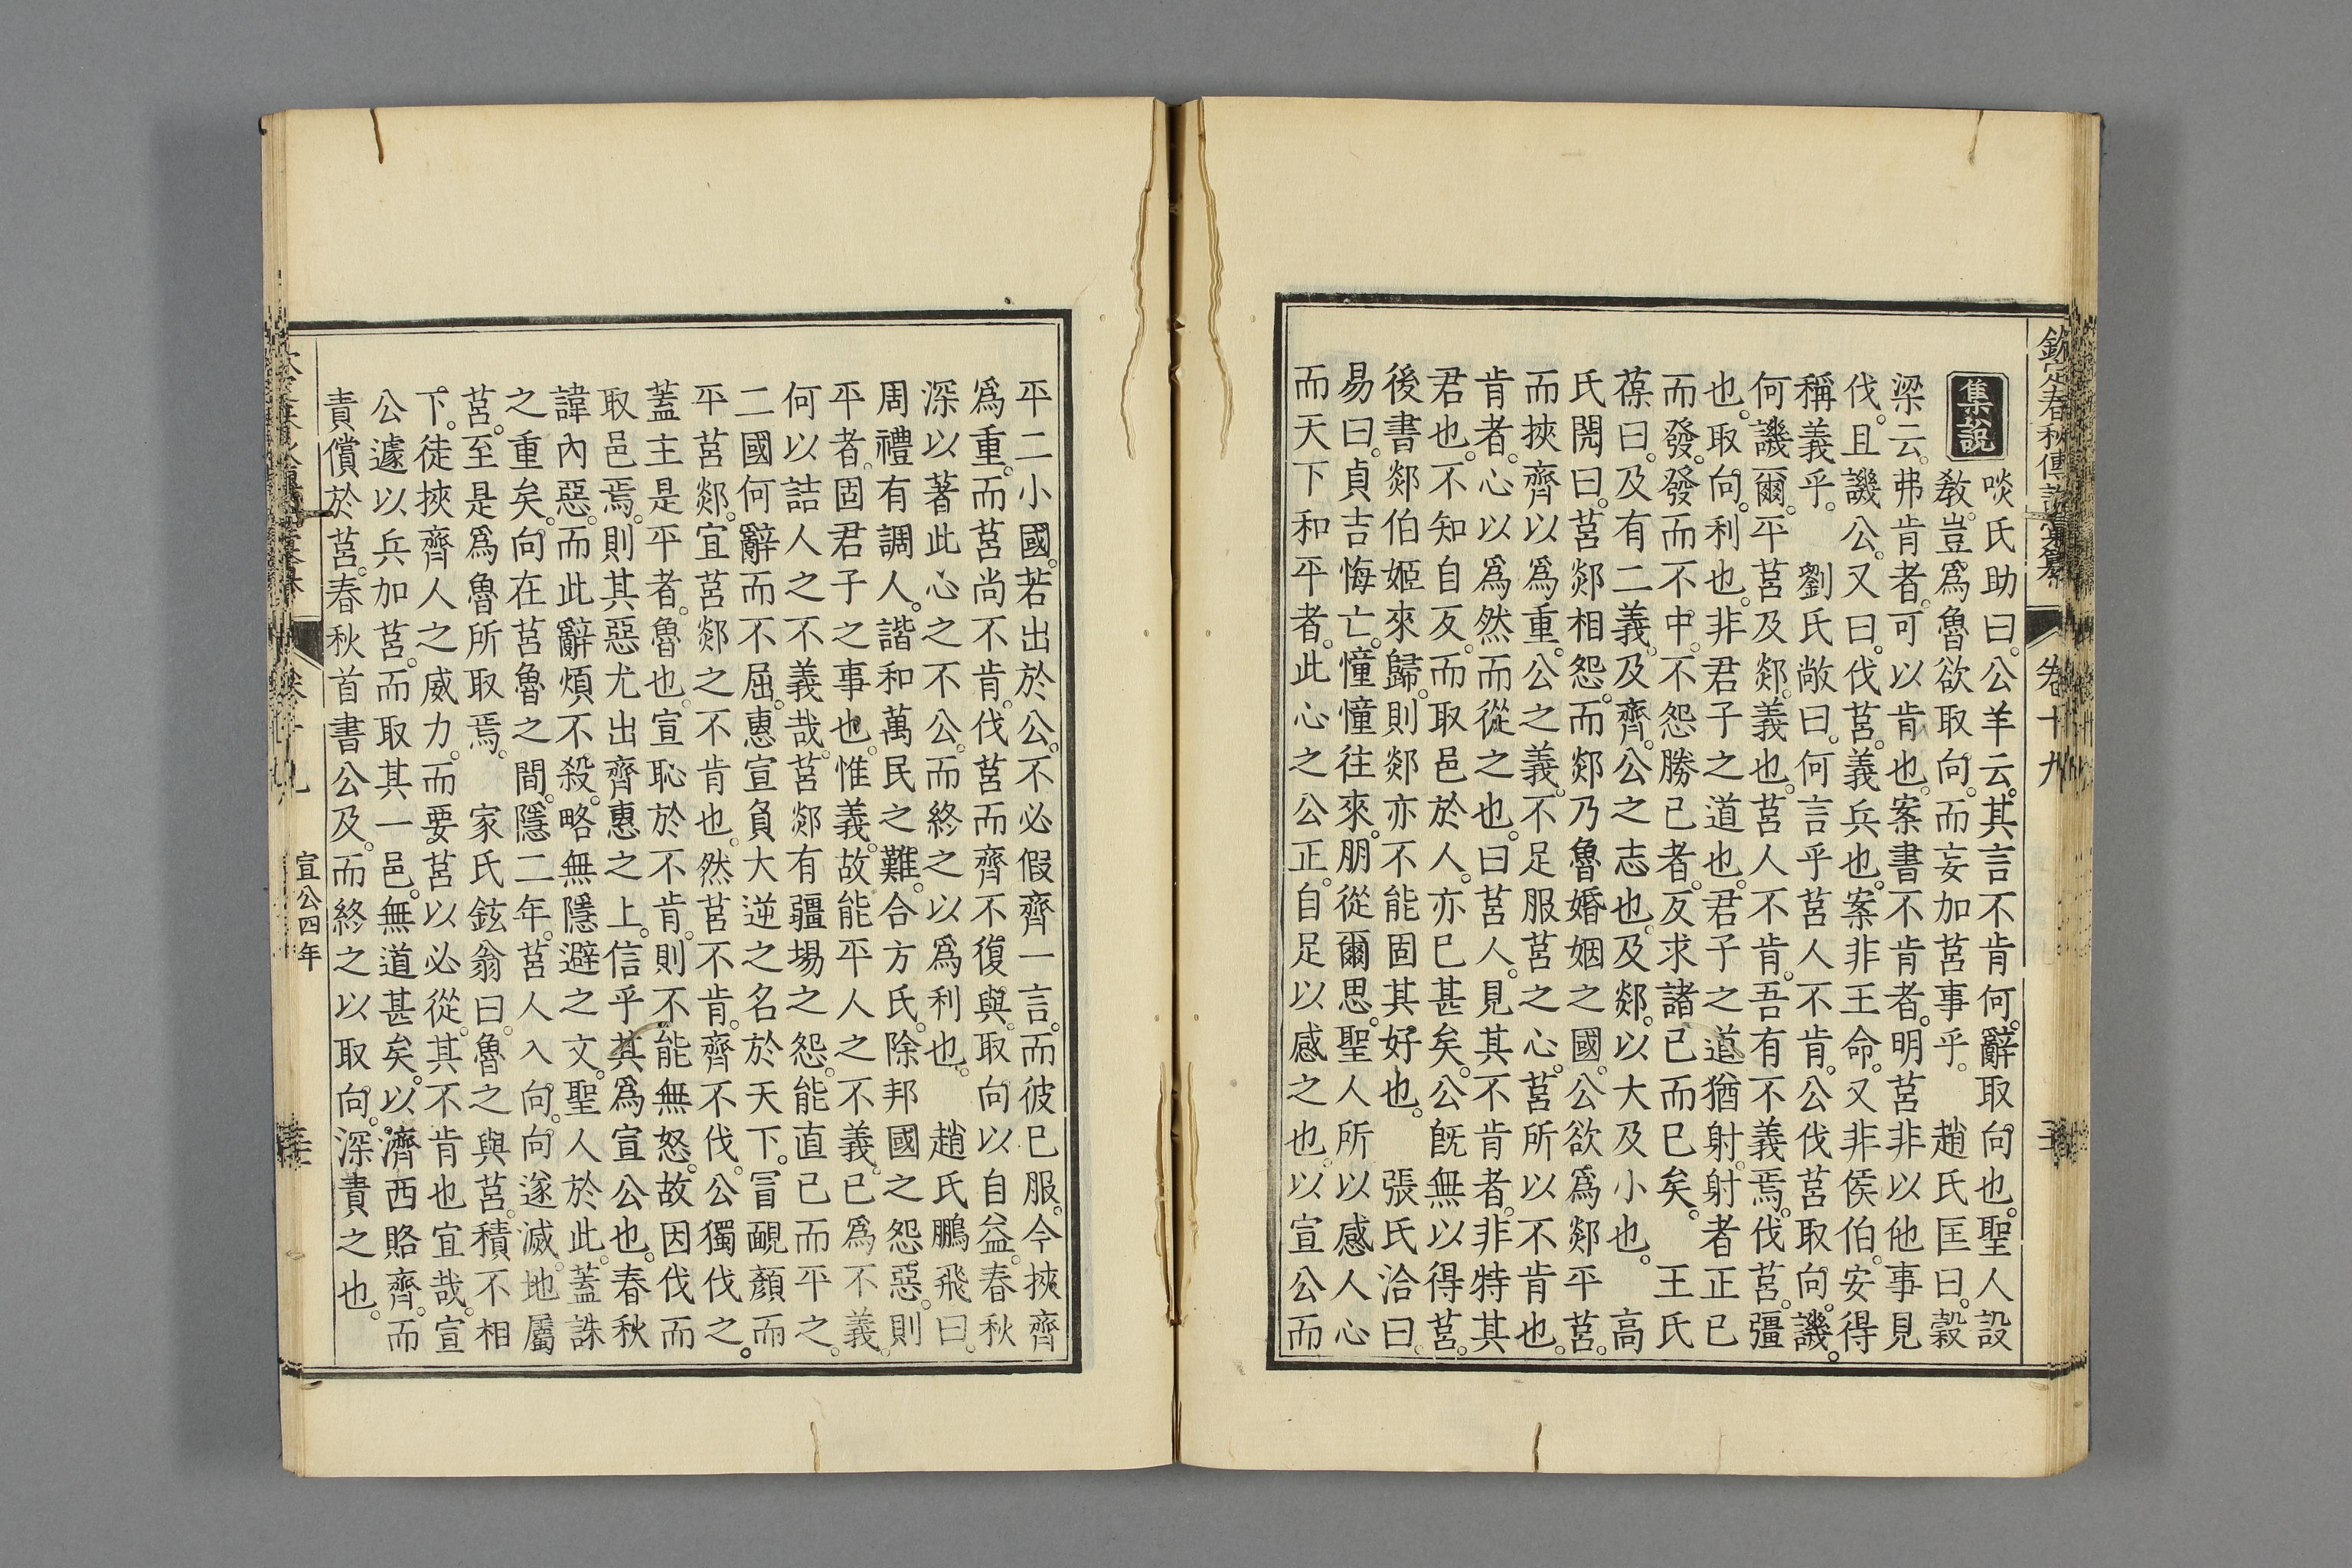 欽定春秋傳說彙纂 卷十九
集說
啖氏助曰。公羊云。其言不肯何。辭取向也。聖人設
敎。豈爲魯欲取向。而妄加莒事乎。 趙氏匡曰。穀
梁云。弗肯者。可以肯也。案書不肯者。明莒非以他事見
伐。且譏公。又曰。伐莒。義兵也。案非王命。又非侯伯。安得
稱義乎。 劉氏敞曰。何言乎莒人不肯。公伐莒取向。譏。
何譏爾。平莒及郯。義也。莒人不肯。吾有不義焉。伐莒。彊
也。取向。利也。非君子之道也。君子之道猶射。射者正已
而發。發而不中。不怨勝己者。反求諸已而已矣。 王氏
葆曰。及有二義。及齊。公之志也。及郯。以大及小也。 高
氏閌曰。莒郯相怨。而郯乃魯婚姻之國。公欲爲郯平莒。
而挾齊以爲重。公之義。不足服莒之心。莒所以不肯也。
肯者。心以爲然而從之也。曰莒人。見其不肯者。非特其
君也。不知自反。而取邑於人。亦已甚矣。公旣無以得莒。
後書郯伯姬來歸。則郯亦不能固其好也。 張氏洽曰。
易曰。貞吉悔亡。憧憧往來。朋從爾思。聖人所以感人心
而天下和平者。此心之公正。自足以感之也。以宣公而
平二小國。若出於公。不必假齊一言。而彼已服。今挾齊
爲重。而莒尚不肯。伐莒而齊不復與。取向以自益。春秋
深以著此心之不公。而終之以爲利也。 趙氏鵬飛曰。
周禮有調人。諧和萬民之難。合方氏。除邦國之怨惡。則
平者。固君子之事也。惟義。故能平人之不義。已爲不義。
何以詰人之不義哉。莒郯有疆埸之怨。能直已而平之。
二國何辭而不屈。惠宣負大逆之名於天下。冒靦顏而
平莒郯。宜莒郯之不肯也。然莒不肯。齊不伐。公獨伐之。
蓋主是平者。魯也。宣恥於不肯。則不能無怒。故因伐而
取邑焉。則其惡尤出齊惠之上。信乎其爲宣公也。春秋
諱內惡。而此辭煩不殺。略無隱避之文。聖人於此。蓋誅
之重矣。向在莒魯之間。隱二年。莒人入向。向遂滅。地屬
莒。至是爲魯所取焉。 家氏鉉翁曰。魯之與莒。積不相
下。徒挾齊人之威力。而要莒以必從。其不肯也宜哉。宣
公遽以兵加莒。而取其一邑。無道甚矣。以濟西賂齊。而
責償於莒。春秋首書公及。而終之以取向。深責之也。
宣公四年